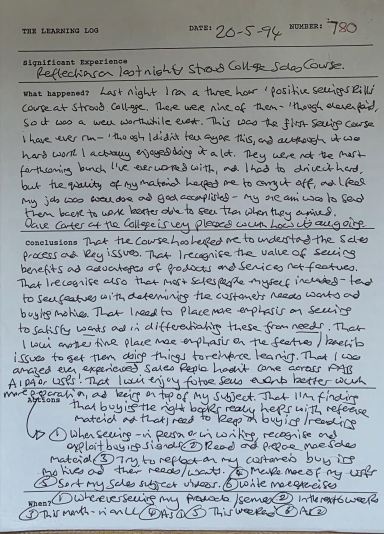 THE LEARNING LOG DATE: 20-5-94 NUMBER: 780
Significant Experience
Reflections on last night's Stroud College Sales Course.
What happened? Last night I ran a three hour 'positive selling skills'
course at Stroud College. There were nine of them - 'though eleven paid,
So it was a well worthwhile event. This was the first selling course
I have ever run - 'though I didn't tell anyone this, and although it was
hard work I actually enjoyed doing it a lot. They were not the most
forthcoming bunch I've ever worked with, and I had to drive it hard,
but the quality of my material helped me to carry it off, and I feel
my job was well done and goal accomplished - my one aim was to send
them back to work better able to sell than when they arrived.
Dave Carter at the College is very pleased with how it's all going
Conclusions That the course has helped me to understand the sales
process and key issues. That I recognise the value of selling
benefits and advantages of products and services not features.
That I recognise also that most salespeople myself included - tend
to sell features with determining the customers needs wants and
buying motives. That I need to place more emphasis on selling
to satisfy wants and in differentiating these from needs. That
I will another time place more emphasis on the features / benefits
issues to get them doing things to reinforce learning. That I was
amazed even experienced Sales People hadn't come across FAB
AIDA or USPs! That I will enjoy future sales events better with
more preparation, and being on top of my subject. That I'm finding
Actions that buying the right books really helps with reference
material and that I need to keep on buying / reading
① When selling - in person or in writing recognise and
exploit buying signals ② Read and prepare more sales
material ③ Try to reflect on my customers buying
motives and their needs / wants. ④ Make more of my USPs
⑤ Sort my sales subject videos. ⑥ Write more exercises
When? ① Whenever selling my products / services ② In the next weeks
③ This month - in all ④ As ① ⑤ This weekend ⑥ As ②